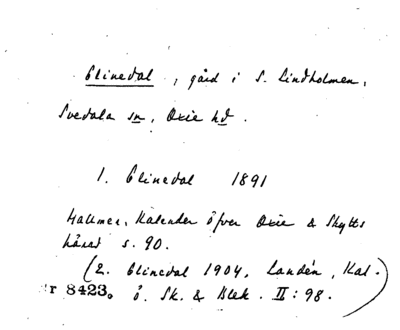 Elinedal, gård i S. Lindholmen,
Svedala sn, Oxie hd.
1. Elinedal 1891
Hallmer, Kalender öfver Oxie & Skytts
härad s. 90.
(2. Elinedal 1904, Landén, Kal.
r 8423. ö. Sk. & Blek. II: 98.)